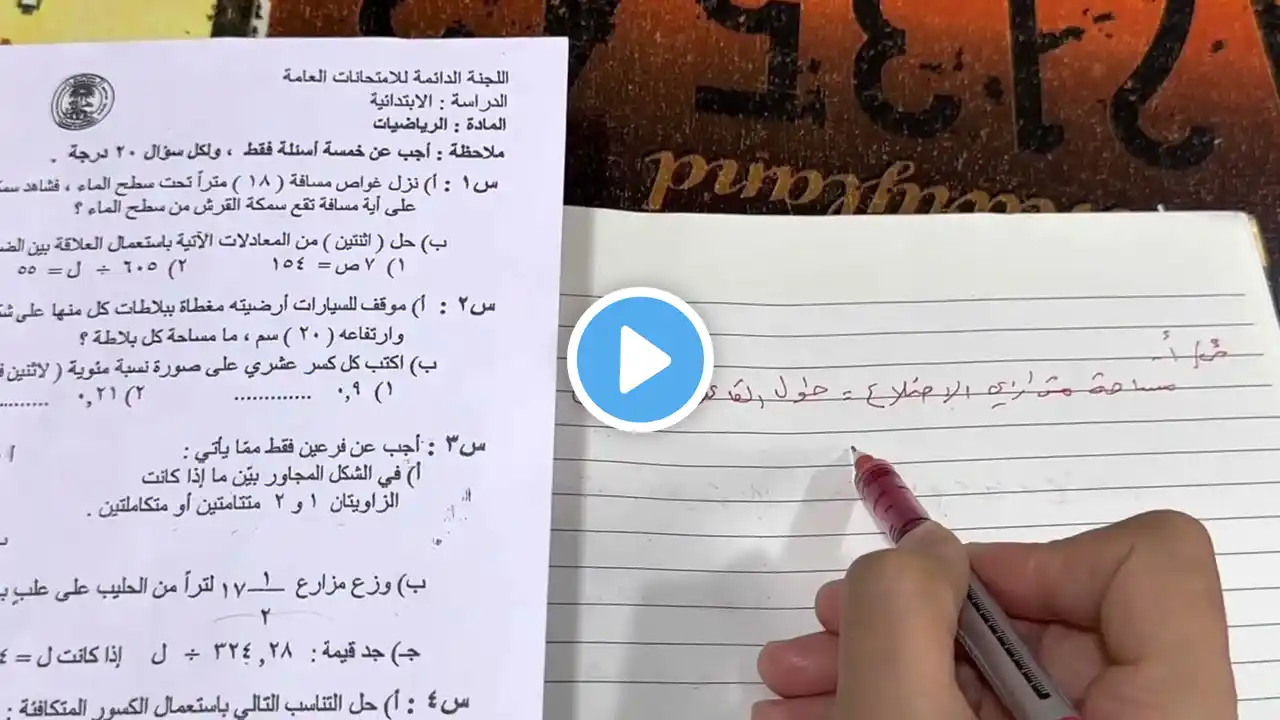 اللجنة الدائمة للامتحانات العامة
الدراسة : الابتدائية
المادة : الرياضيات
ملاحظة : أجب عن خمسة أسئلة فقط ، ولكل سؤال ٢٠ درجة .
س١ : أ) نزل غواص مسافة ( ١٨ ) متراً تحت سطح الماء ، فشاهد
على أية مسافة تقع سمكة القرش من سطح الماء ؟
ب) حل ( اثنتين ) من المعادلات الآتية باستعمال العلاقة بين
١) ٧ص = ١٥٤ ٢) ٦٠٥ ÷ ل = ٥٥
س٢ : أ) موقف للسيارات أرضيته مغطاة ببلاطات كل منها على
وارتفاعه ( ٢٠ ) سم ، ما مساحة كل بلاطة ؟
ب) اكتب كل كسر عشري على صورة نسبة مئوية ( لاثنين
١) ٠,٩ ............. ٢) ٠,٢١ .........
س٣ : أجب عن فرعين فقط ممّا يأتي :
أ) في الشكل المجاور بيّن ما إذا كانت
الزاويتان ١ و ٢ متتامتين أو متكاملتين .
ب) وزع مزارع ١٧ ١/٢ لتراً من الحليب على علب
جـ) جد قيمة : ٣٢٤,٢٨ ÷ ل إذا كانت ل =
س٤ : أ) حل التناسب التالي باستعمال الكسور المتكافئة :
أ-
مساحة متوازي الاضلاع = طول